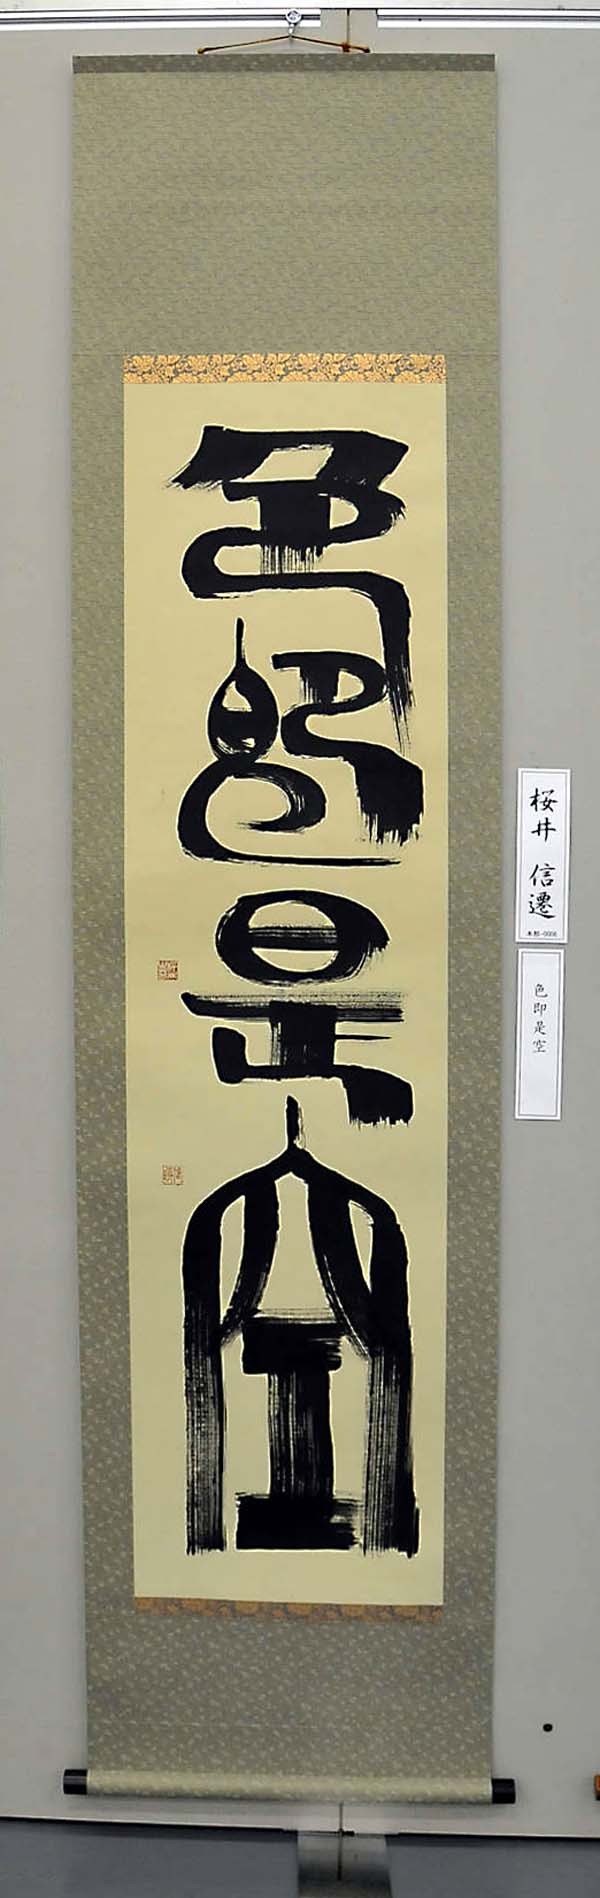 色即是空
桜井 信遷
本部-0006
色即是空